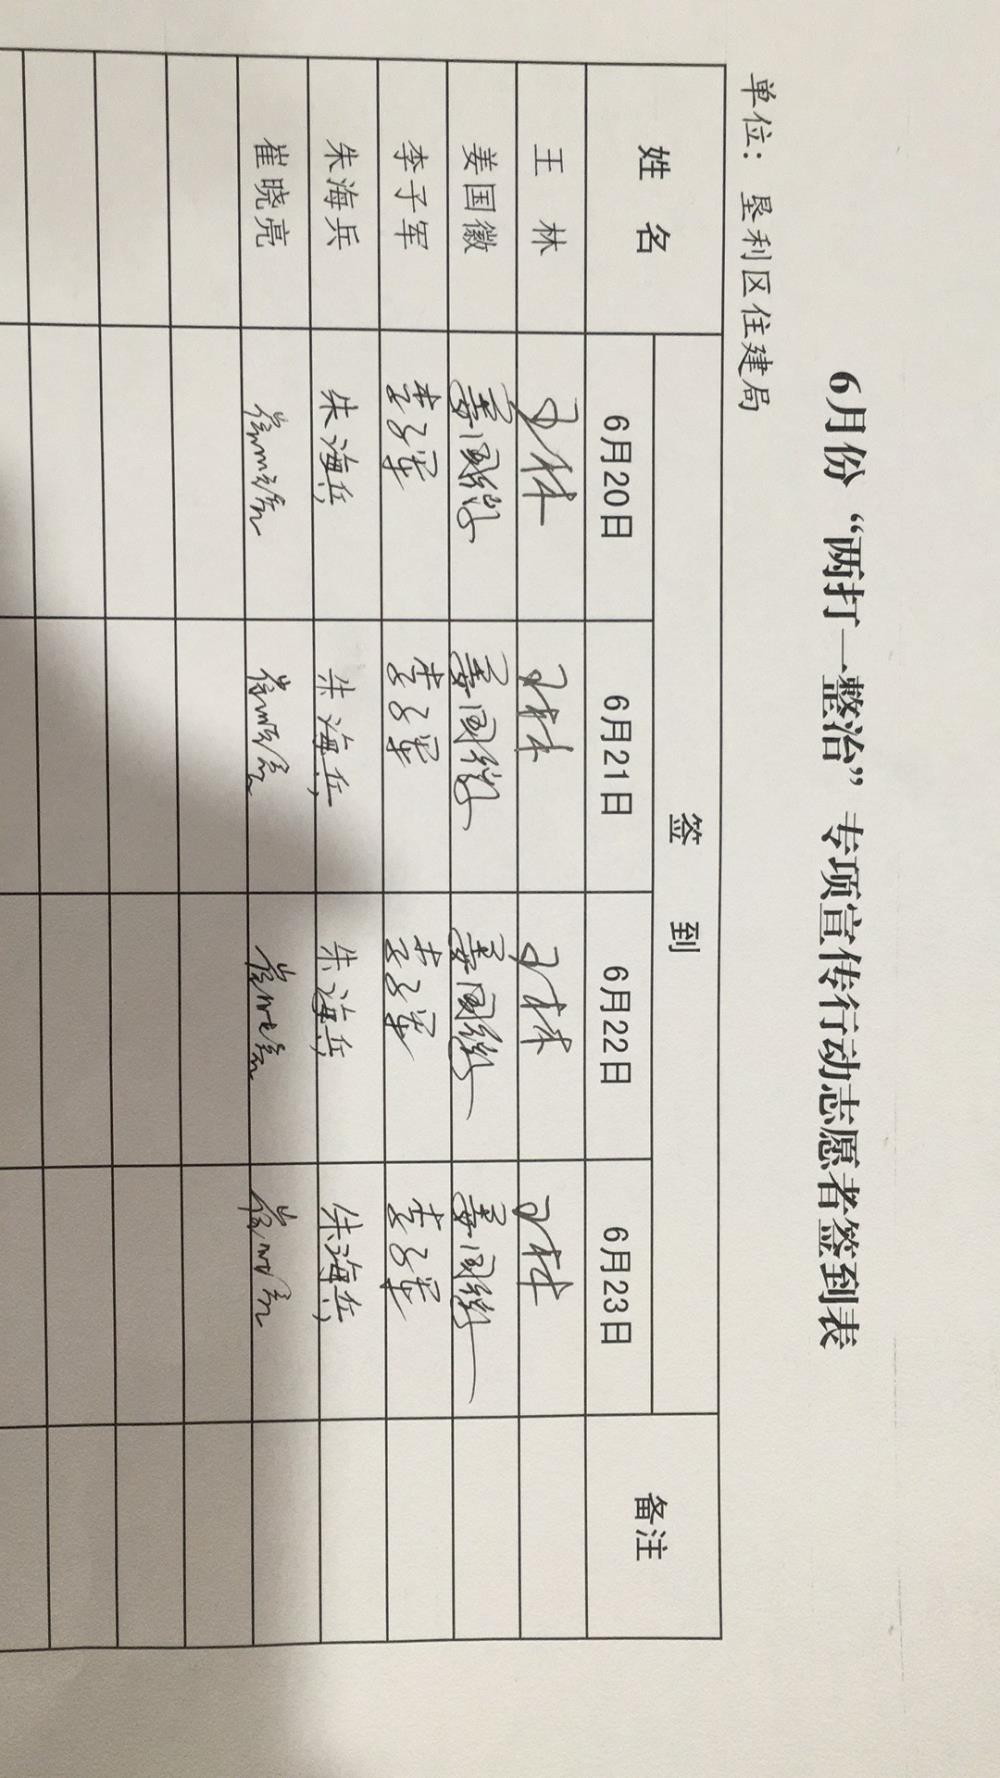 6月份“两打一整治”专项宣传行动志愿者签到表
单位：垦利区住建局
姓 名 签 到 备注
6月20日 6月21日 6月22日 6月23日
王 林 王林 王林 王林 王林
姜国徽 姜国徽 姜国徽 姜国徽 姜国徽
李子军 李子军 李子军 李子军 李子军
朱海兵 朱海兵 朱海兵 朱海兵 朱海兵
崔晓亮 崔晓亮 崔晓亮 崔晓亮 崔晓亮